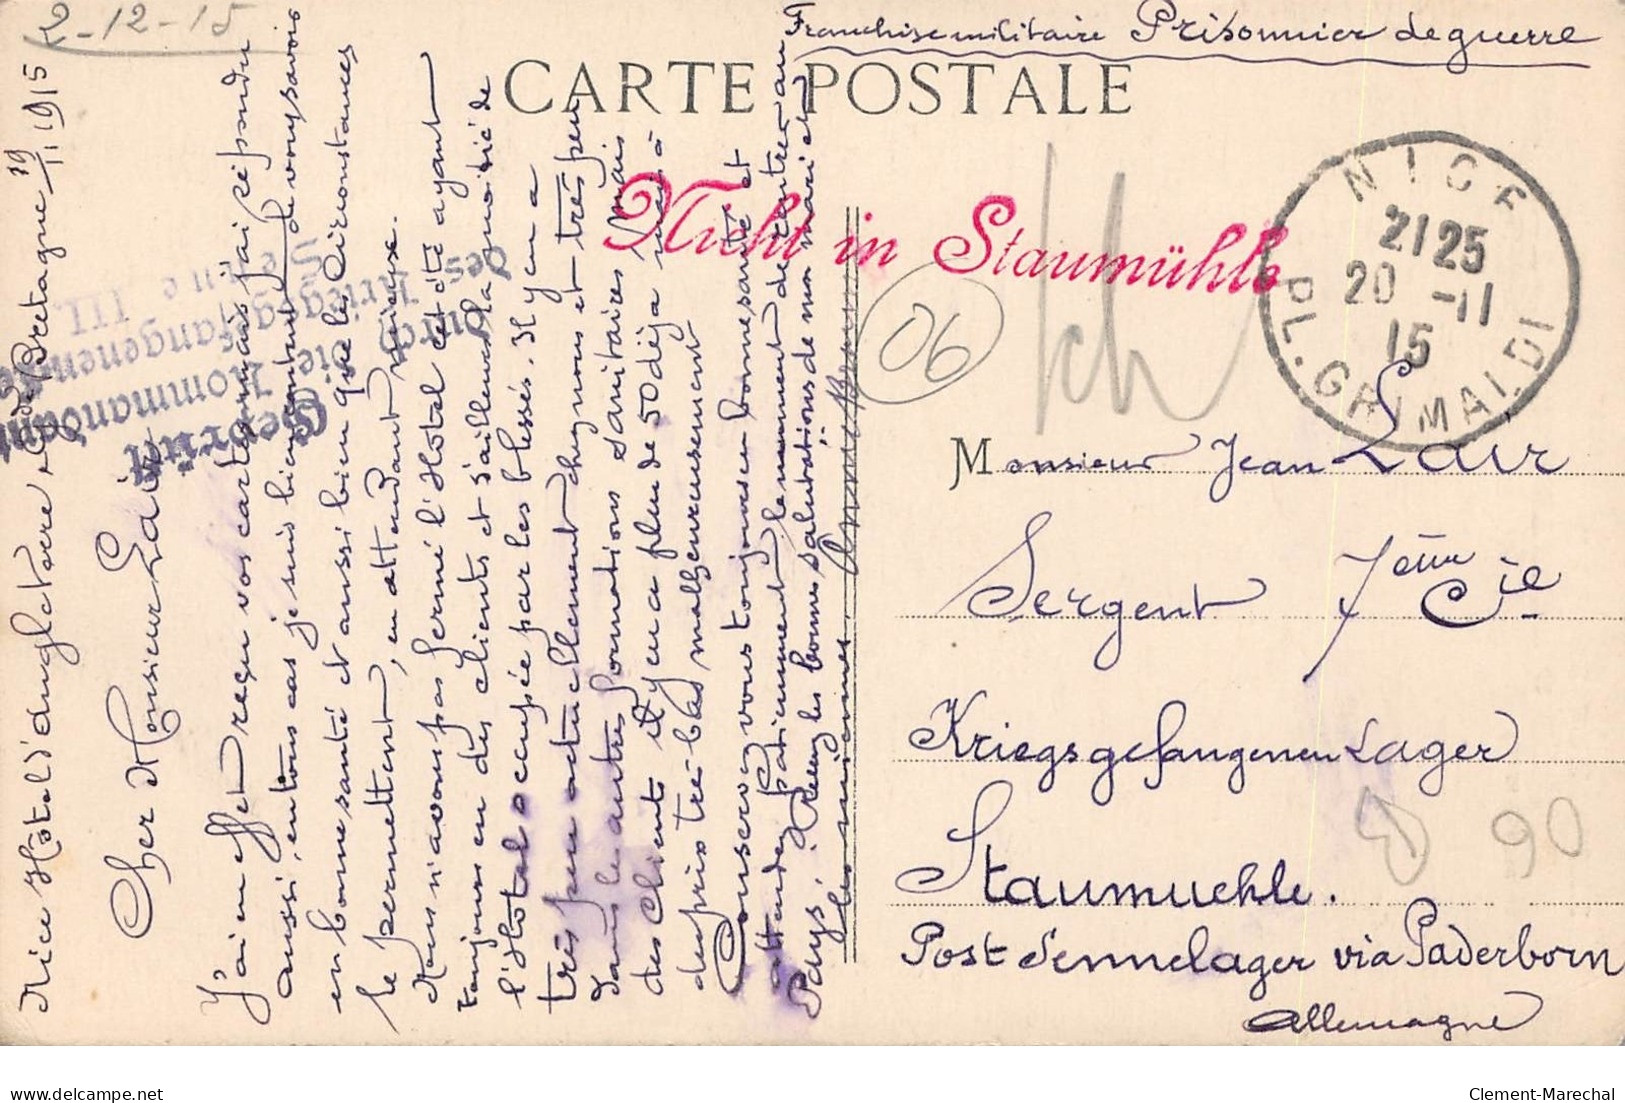 2-12-15
Franchise militaire Prisonnier de guerre
CARTE POSTALE
Nicht in Staumühle
NICE
21 25
20 -11
15
PL. GRIMALDI
06
Monsieur Jean Lair
Sergent 7ème Cie
Kriegsgefangenen Lager
Staumuehle.
Post Sennelager via Paderborn
Allemagne
90
Nice Hôtel d'angleterre & de Bretagne 19/11 1915
Cher Monsieur Lair
J'ai en effet reçu vos cartes mais j'ai répondu
aussi, en tous cas je suis bien content de vous savoir
en bonne santé et aussi bien que les Circonstances
le permettent, en attendant mieux.
Nous n'avons pas fermé l'Hotel cet été ayant
toujours eu des clients et d'ailleurs la moitié de
l'Hotel occupée par les blessés. Il y en a
très peu actuellement chez nous et très peu
dans les autres formations sanitaires mais
des Clients il y en a plus de 50 déja mais à
des prix très bas malheureusement
Conservez vous toujours en bonne santé et
attendez patiemment le moment de rentrer au
Pays. Recevez les bonnes salutations de mon mari et
les miennes.
Geprüft
Kommandant
die
Kriegsgefangenen